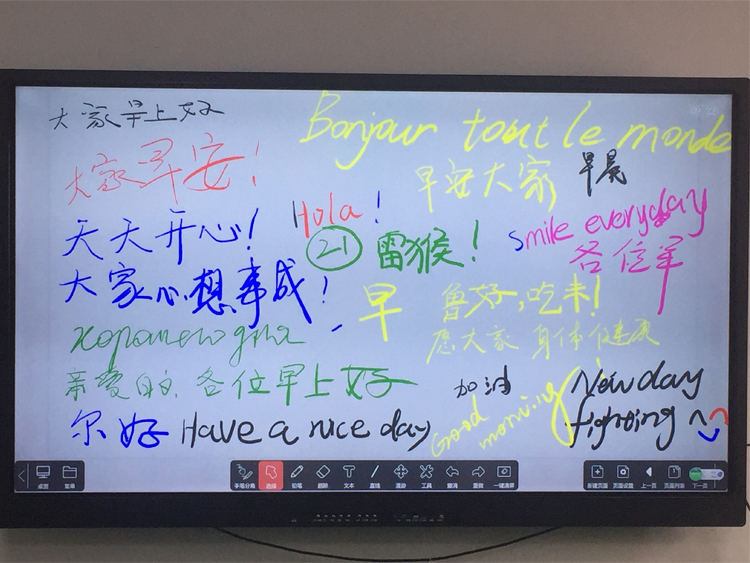 大家早上好
Bonjour tout le monde
大家早安！
早安大家
早晨
天天开心！
Hola！
21
雷猴！
smile everyday
各位早
大家心想事成！
早
鲁好,吃未！
愿大家 身体健康
хорапеподпя
亲爱的，各位早上好
加油
New day
fighting ^
尔好 Have a nice day
Good
morning
桌面
菜单
手笔分离
选择
铅笔
删除
文本
直线
漫游
工具
撤消
重做
一键清屏
新建页面
页面设置
上一页
页面列表
下一页